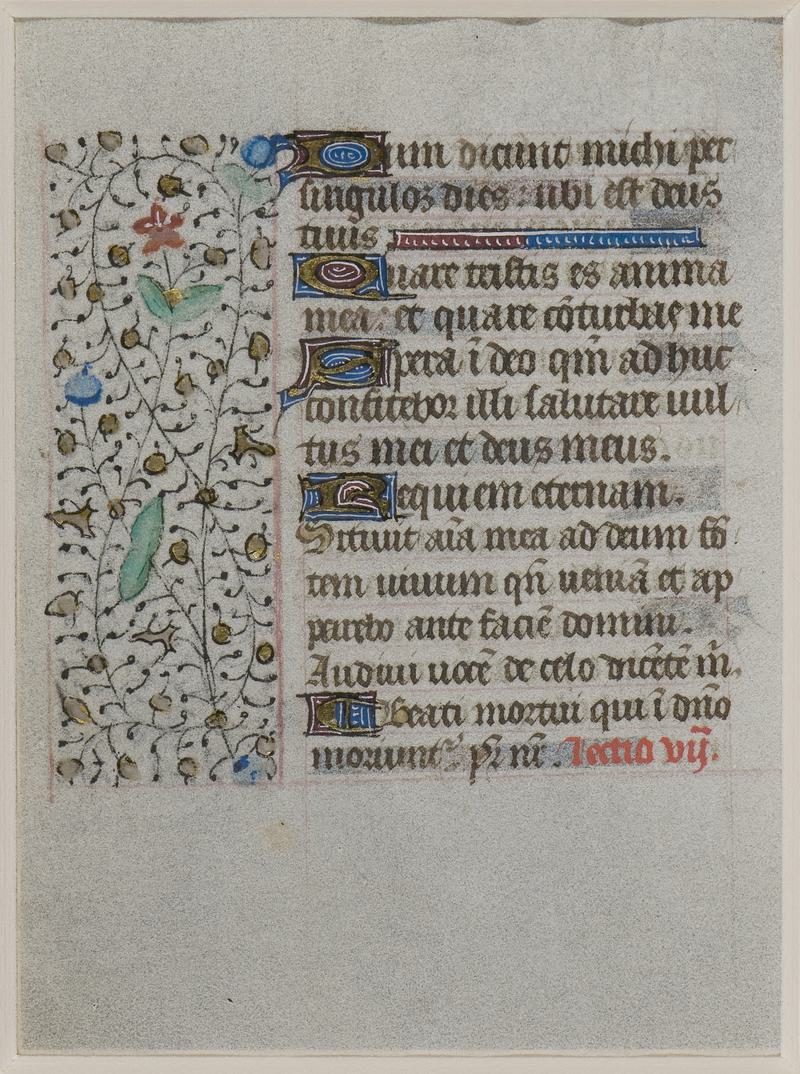 Dum dicunt michi per
singulos dies : ubi est deus
tuus
Quare tristis es anima
mea : et quare cōturbas me
Spera ī deo qm̄ ad huc
confitebor illi salutare uul
tus mei et deus meus.
Requiem eternam.
Sitiuit aīa mea ad deum fō
tem uiuum qn̄ ueniā et ap
parebo ante faciē domini.
Audiui uocē de celo dicētē m̄.
Beati mortui qui ī dn̄o
moriunt᷑ pr̄ nr̄. Lectio vij.